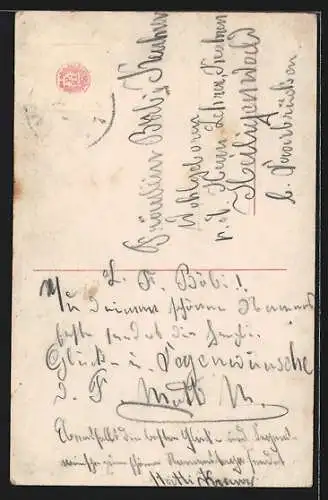 Fräulein Babi
Wohlgeboren
p. A. Herrn Lehrer
Heiligenwald
b. Saarbrücken
L. F. Bäbi!
Zu Deinem schönen Namens
feste sendet die herzl.
Glück- u. Segenswünsche
d. F. M.
Ebenfalls die besten Glück- und Segens-
wünsche zum schönen Namenstage sendet